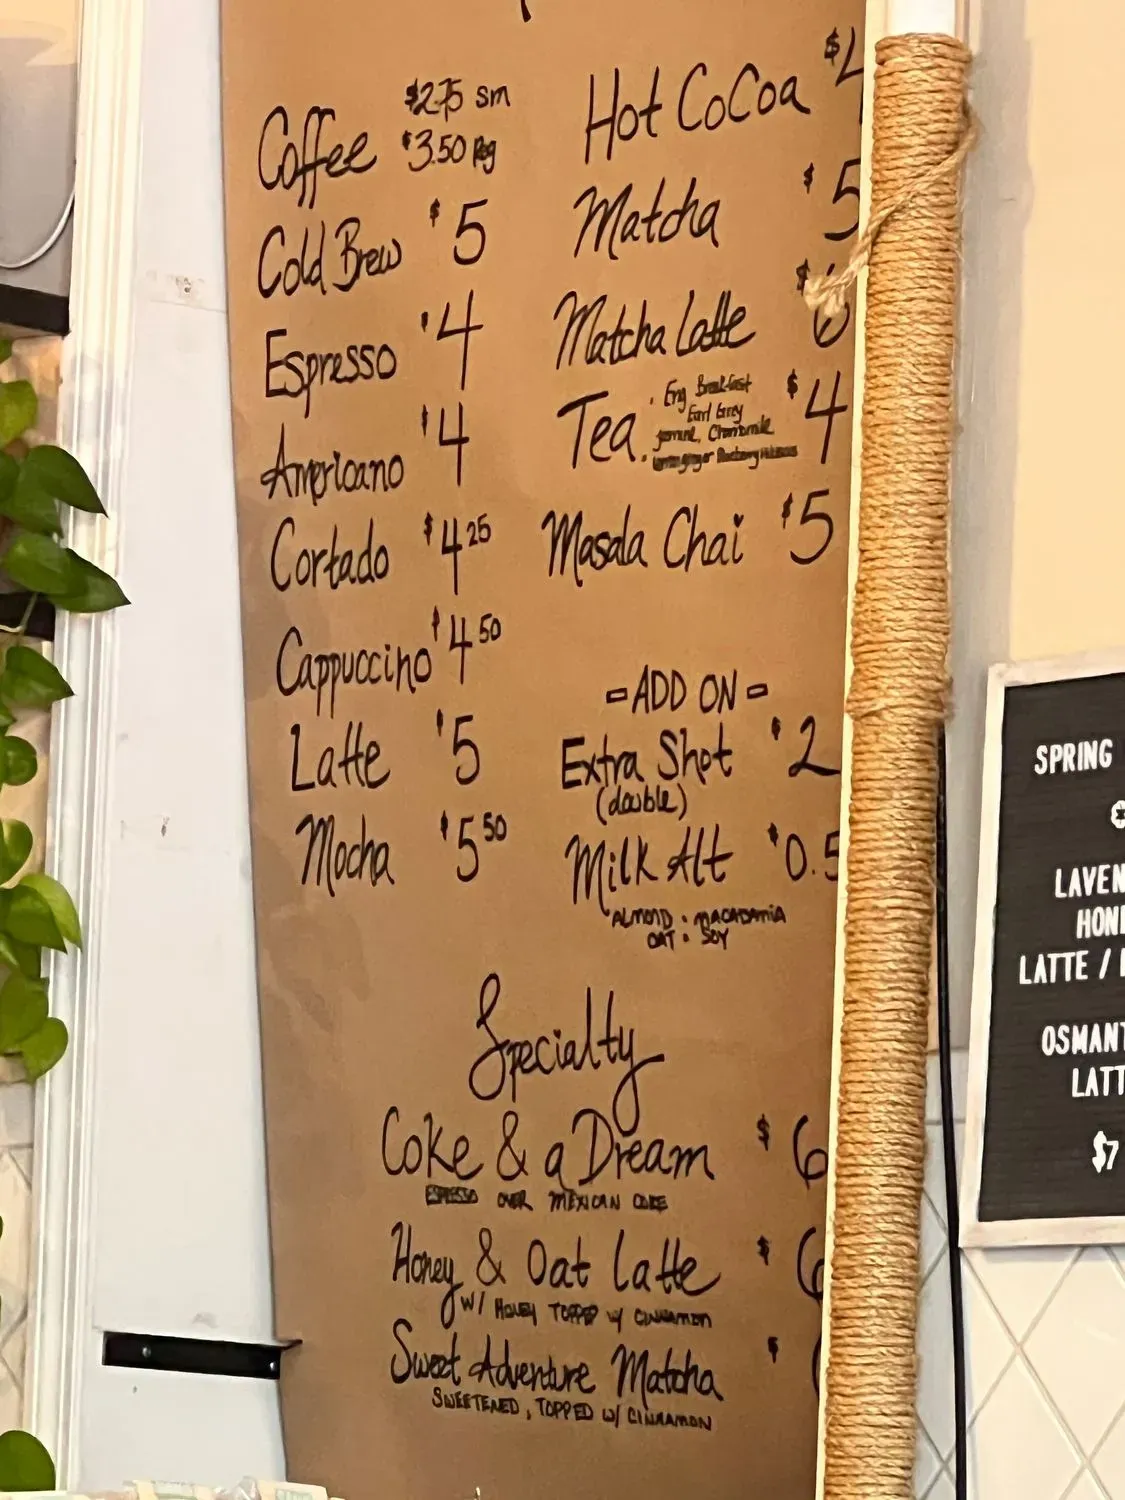 Coffee $2.75 sm
$3.50 Reg
Cold Brew $5
Espresso $4
Americano $4
Cortado $4.25
Cappuccino $4.50
Latte $5
Mocha $5.50
Hot CoCoa $4
Matcha $5
Matcha Latte $6
Tea $4
Eng Breakfast
Earl Grey
Jasmine, Chamomile
Masala Chai $5
- ADD ON -
Extra Shot $2
(double)
Milk Alt $0.5
ALMOND • MACADAMIA
OAT • SOY
Specialty
Coke & a Dream $6
ESPRESSO OVER MEXICAN COKE
Honey & Oat Latte $6
W/ HONEY TOPPED W/ CINNAMON
Sweet Adventure Matcha $
SWEETENED, TOPPED W/ CINNAMON
SPRING
LAVEN
HON
LATTE /
OSMANT
LATT
$7